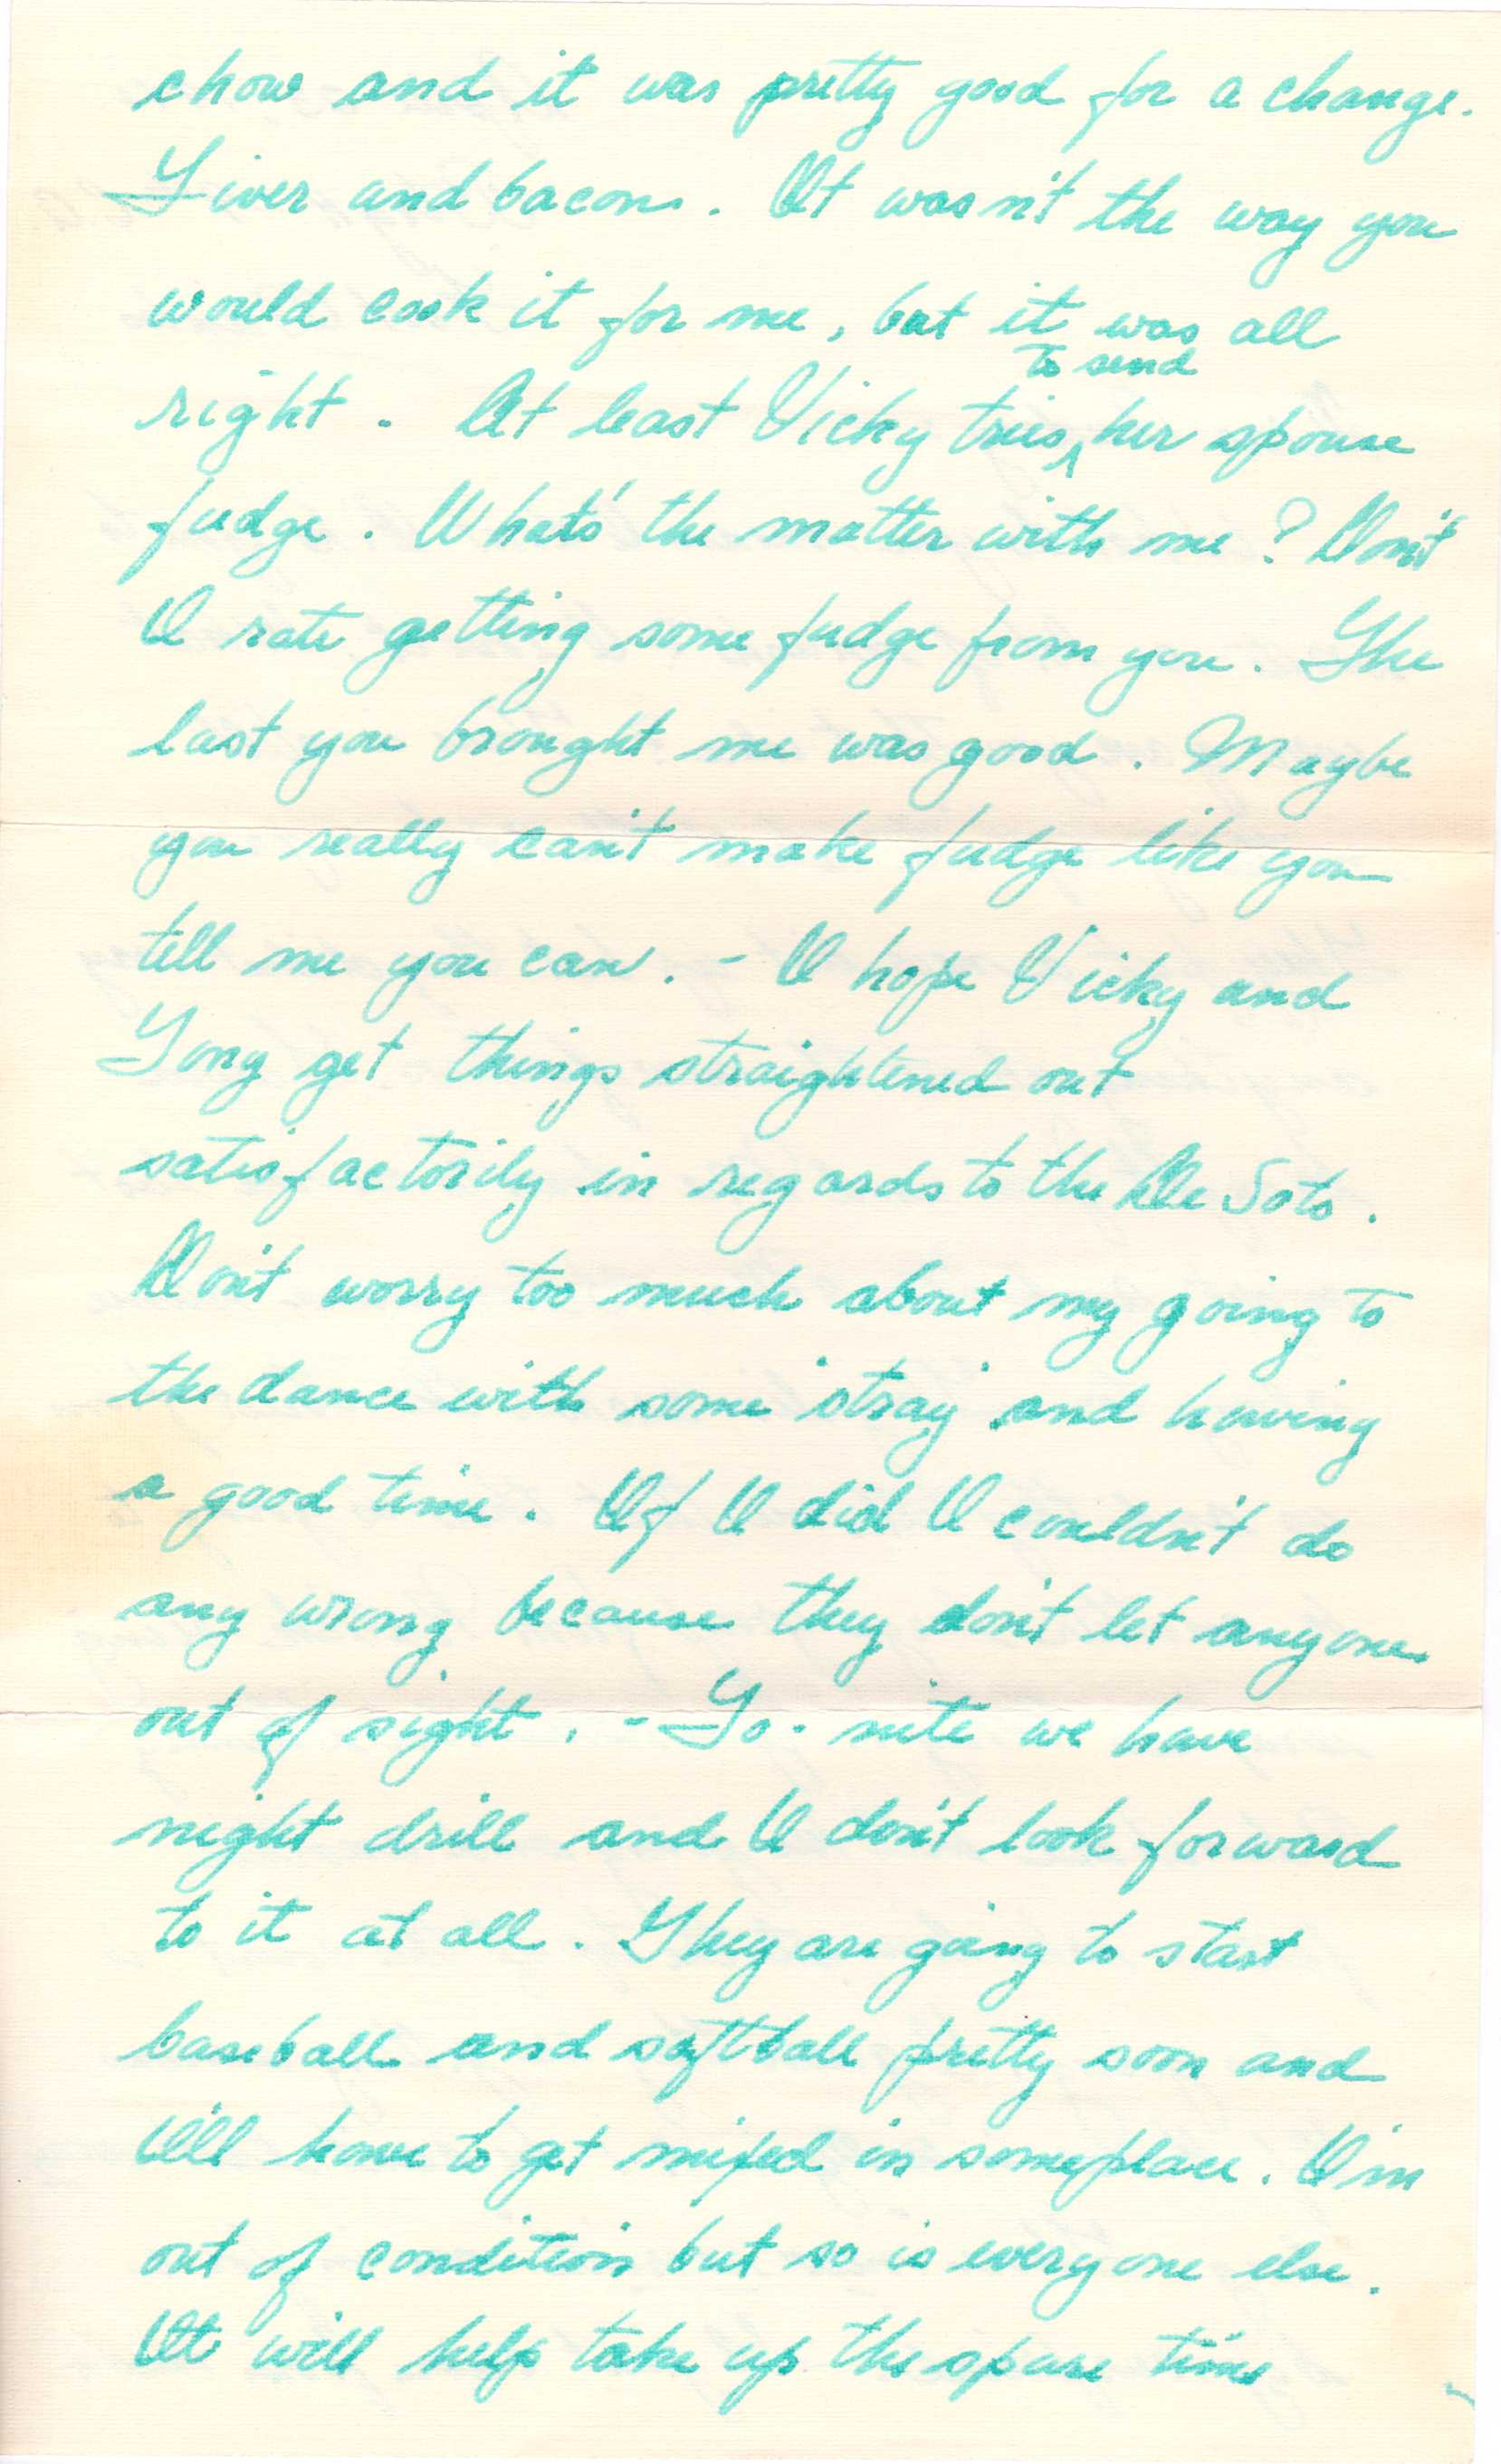 chow and it was pretty good for a change.
Liver and bacon. It wasn't the way you
would cook it for me, but it was all
right. At least Vicky tries ^to send her spouse
fudge. What's the matter with me? Don't
I rate getting some fudge from you. The
last you brought me was good. Maybe
you really can't make fudge like you
tell me you can. - I hope Vicky and
Tony get things straightened out
satisfactorily in regards to the De Soto.
Don't worry too much about my going to
the dance with some 'stray' and having
a good time. If I did I couldn't do
any wrong because they don't let anyone
out of sight. - To-nite we have
night drill and I don't look forward
to it at all. They are going to start
baseball and softball pretty soon and
I'll have to get mixed in someplace. I'm
out of condition but so is everyone else.
It will help take up the spare time